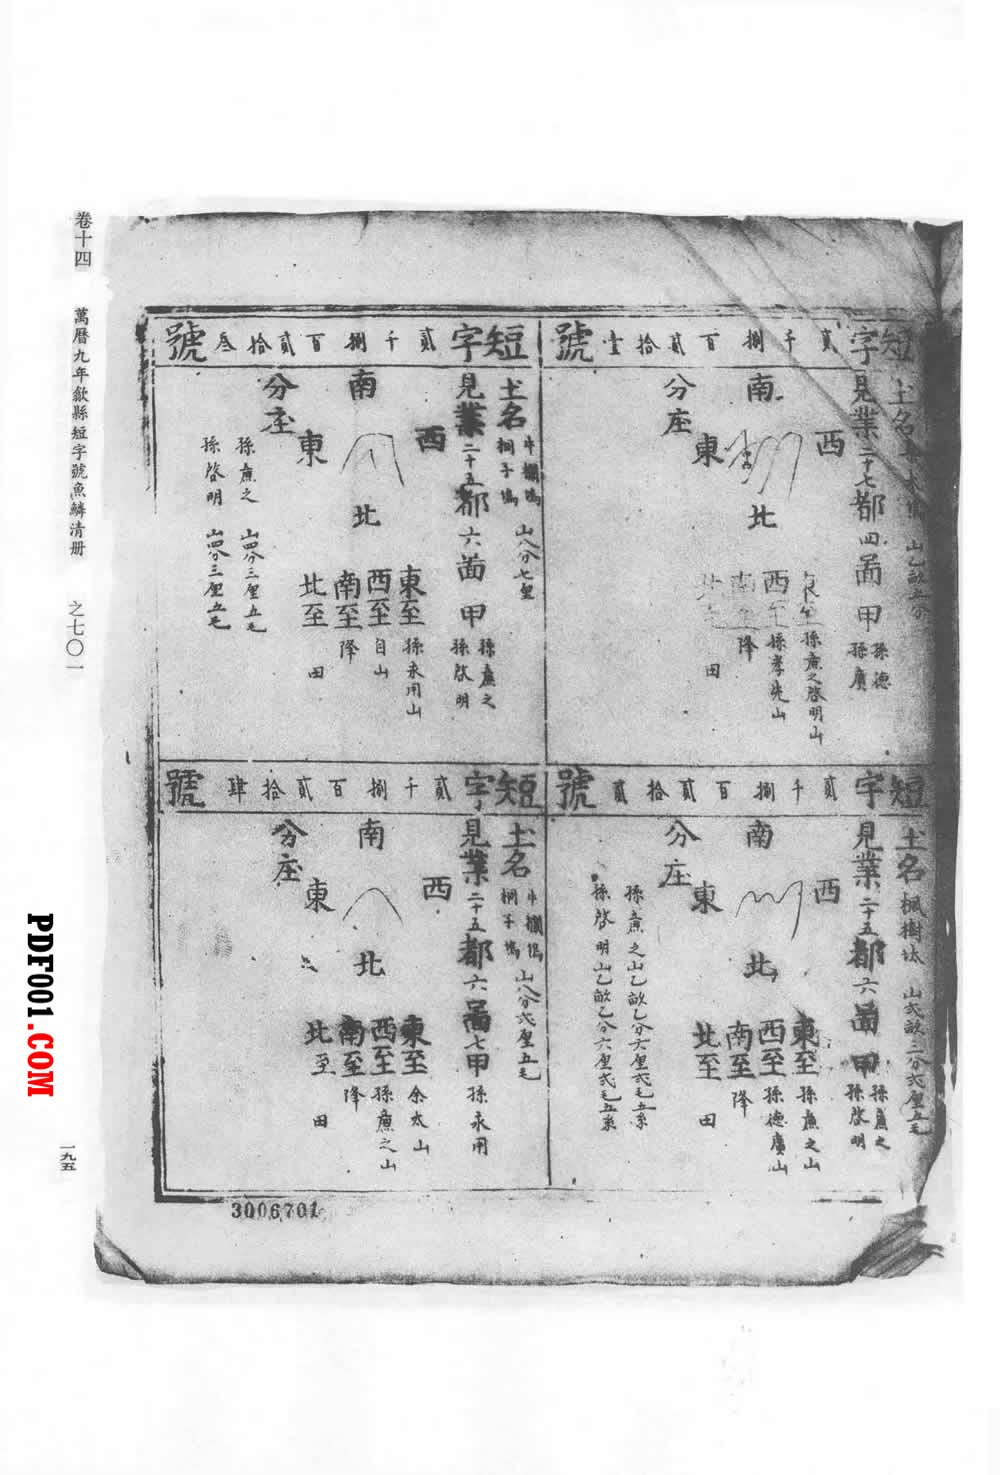 卷十四 萬曆九年歙縣短字號魚鱗清册 之七〇一
一九五
短字貳千捌百貳拾壹號
土名
山乙畝五分
見業二十七都四啚甲
孫德
孫廣
南
西
東
北
孫㢘之啓明山
西至孫孝先山
南至降
北至田
分庄
短字貳千捌百貳拾貳號
土名楓樹坑
山弍畝三分弍厘五毛
見業二十五都六啚甲
孫㢘之
孫啓明
南
西
東
北
東至孫㢘之山
西至孫德廣山
南至降
北至田
分庄
孫㢘之山乙畝乙分六厘弍毛五系
孫啓明山乙畝乙分六厘弍毛五系
短字貳千捌百貳拾叁號
土名
牛欄塢
桐子塢
山八分七厘
見業二十五都六啚甲
孫㢘之
孫啓明
南
西
東
北
東至孫永用山
西至自山
南至降
北至田
分庄
孫㢘之 山四分三厘五毛
孫啓明 山四分三厘五毛
短字貳千捌百貳拾肆號
土名
牛欄塢
桐子塢
山八分弍厘五毛
見業二十五都六啚七甲孫永用
南
西
東
北
東至余太山
西至孫㢘之山
南至降
北至田
分庄
3006701
PDF001.COM